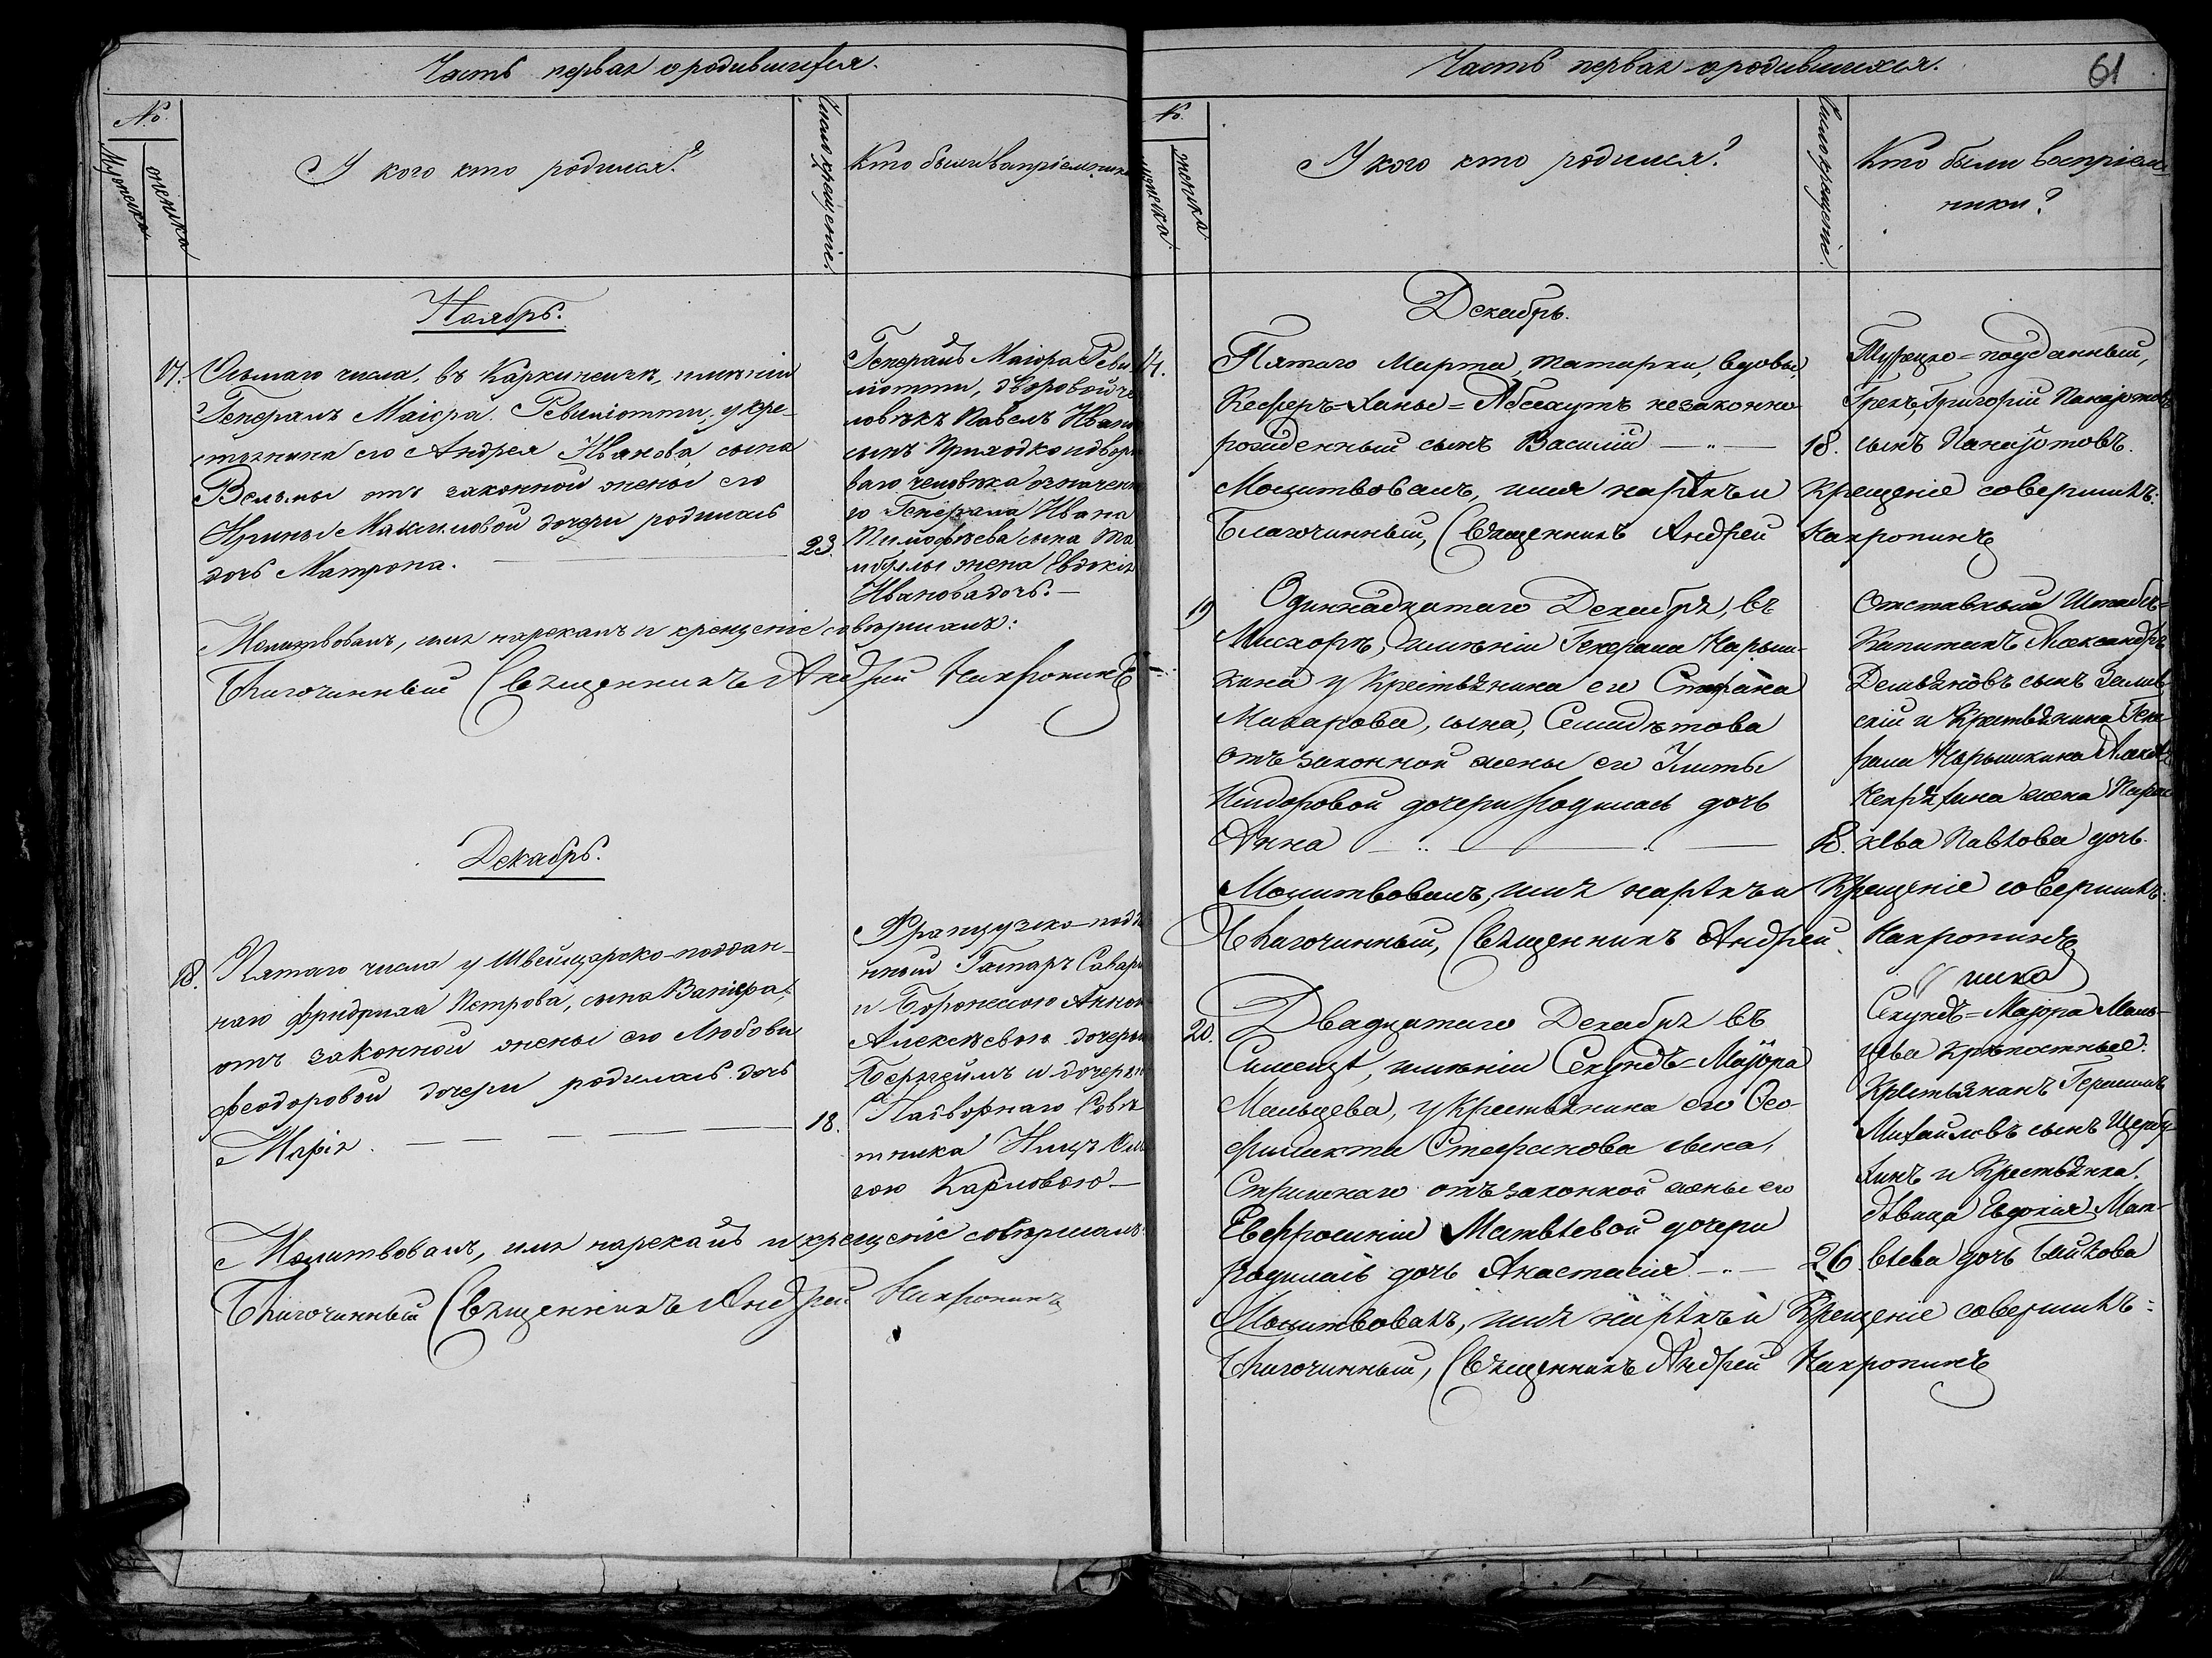 Часть первая о родившихся.
№
Мужеска
женска
У кого кто родился?
Число крещенія.
Кто были Воспріемники
Ноябрь.
17.
Осьмаго числа, въ имѣніи
Генералъ Маіора Ревиліотти, у кре-
стьянина его Андрея Иванова, сына
отъ законной жены его
Ирины Максимовой дочери родилась
дочь Матрона.
23.
Генералъ Маіора Реви
ліотти, дворовой че
ловѣкъ Павелъ Ивано
сынъ Приходко и дворо
ваго человѣка означенн
го Генерала Ивана
Тимофѣева сына
жена Евдокія
Иванова дочь.
Молитвовалъ, имя нарекалъ и крещеніе совершалъ:
Благочинный Священникъ Андрей Накропинъ
Декабрь.
18.
Пятаго числа у Швейцарско-поддан-
наго Фридриха Петрова, сына
отъ законной жены его Любови
Феодоровой дочери родилась дочь
Марія
18.
Французско-подда
нный Гаспаръ
и Боронессою Анною
Алексѣевою дочерью
и дочерью
Надворнаго Совѣ
тника
гою Карловою
Молитвовалъ, имя нарекалъ и крещеніе совершалъ:
Благочинный Священникъ Андрей Накропинъ
Часть первая о родившихся.
61
№
мужеска
женска
У кого кто родился?
Число крещеніе.
Кто были воспріем-
ники?
Декабрь.
14.
Пятаго Марта, татарки, вдовы,
незаконно
рожденный сынъ Василій
18.
Турецко=подданный,
Грекъ, Григорій Панаіотовъ
сынъ Панаіотовъ.
Молитвовалъ, имя нарѣкъ и Крещеніе совершилъ:
Благочинный, Священникъ Андрей Накропинъ
19
Одиннадцатаго Декабря, въ
Мисхорѣ, имѣніи Генерала Нарыш-
кина у Крестьянина его Стефана
Макарова, сына, Семилѣтова
отъ законной жены его Улиты
Исидоровой дочери родилась дочь
Анна
18.
Отставный Штабсъ=
Капитанъ Александръ
Демьяновъ сынъ
скій и Крестьянина Гене
рала Нарышкина
жена Парас
кева Павлова дочь.
Молитвовалъ, имя нарѣкъ и Крещеніе совершилъ:
Благочинный, Священникъ Андрей Накропинъ
20.
Двадцатаго Декабря въ
Симеизѣ, имѣніи Секундъ=Маіора
Мальцева, у Крестьянина его Фео-
филакта Стефанова сына,
отъ законной жены его
Евфросиніи Матвѣевой дочери
родилась дочь Анастасія
26
Секундъ=Маіора Маль-
цева Крѣпостные:
Крестьянинъ Герасимъ
Михайловъ сынъ
и Крестьянка,
дѣвица Евдокія Мат-
вѣева дочь
Молитвовалъ, имя нарѣкъ и Крещеніе совершилъ:
Благочинный, Священникъ Андрей Накропинъ